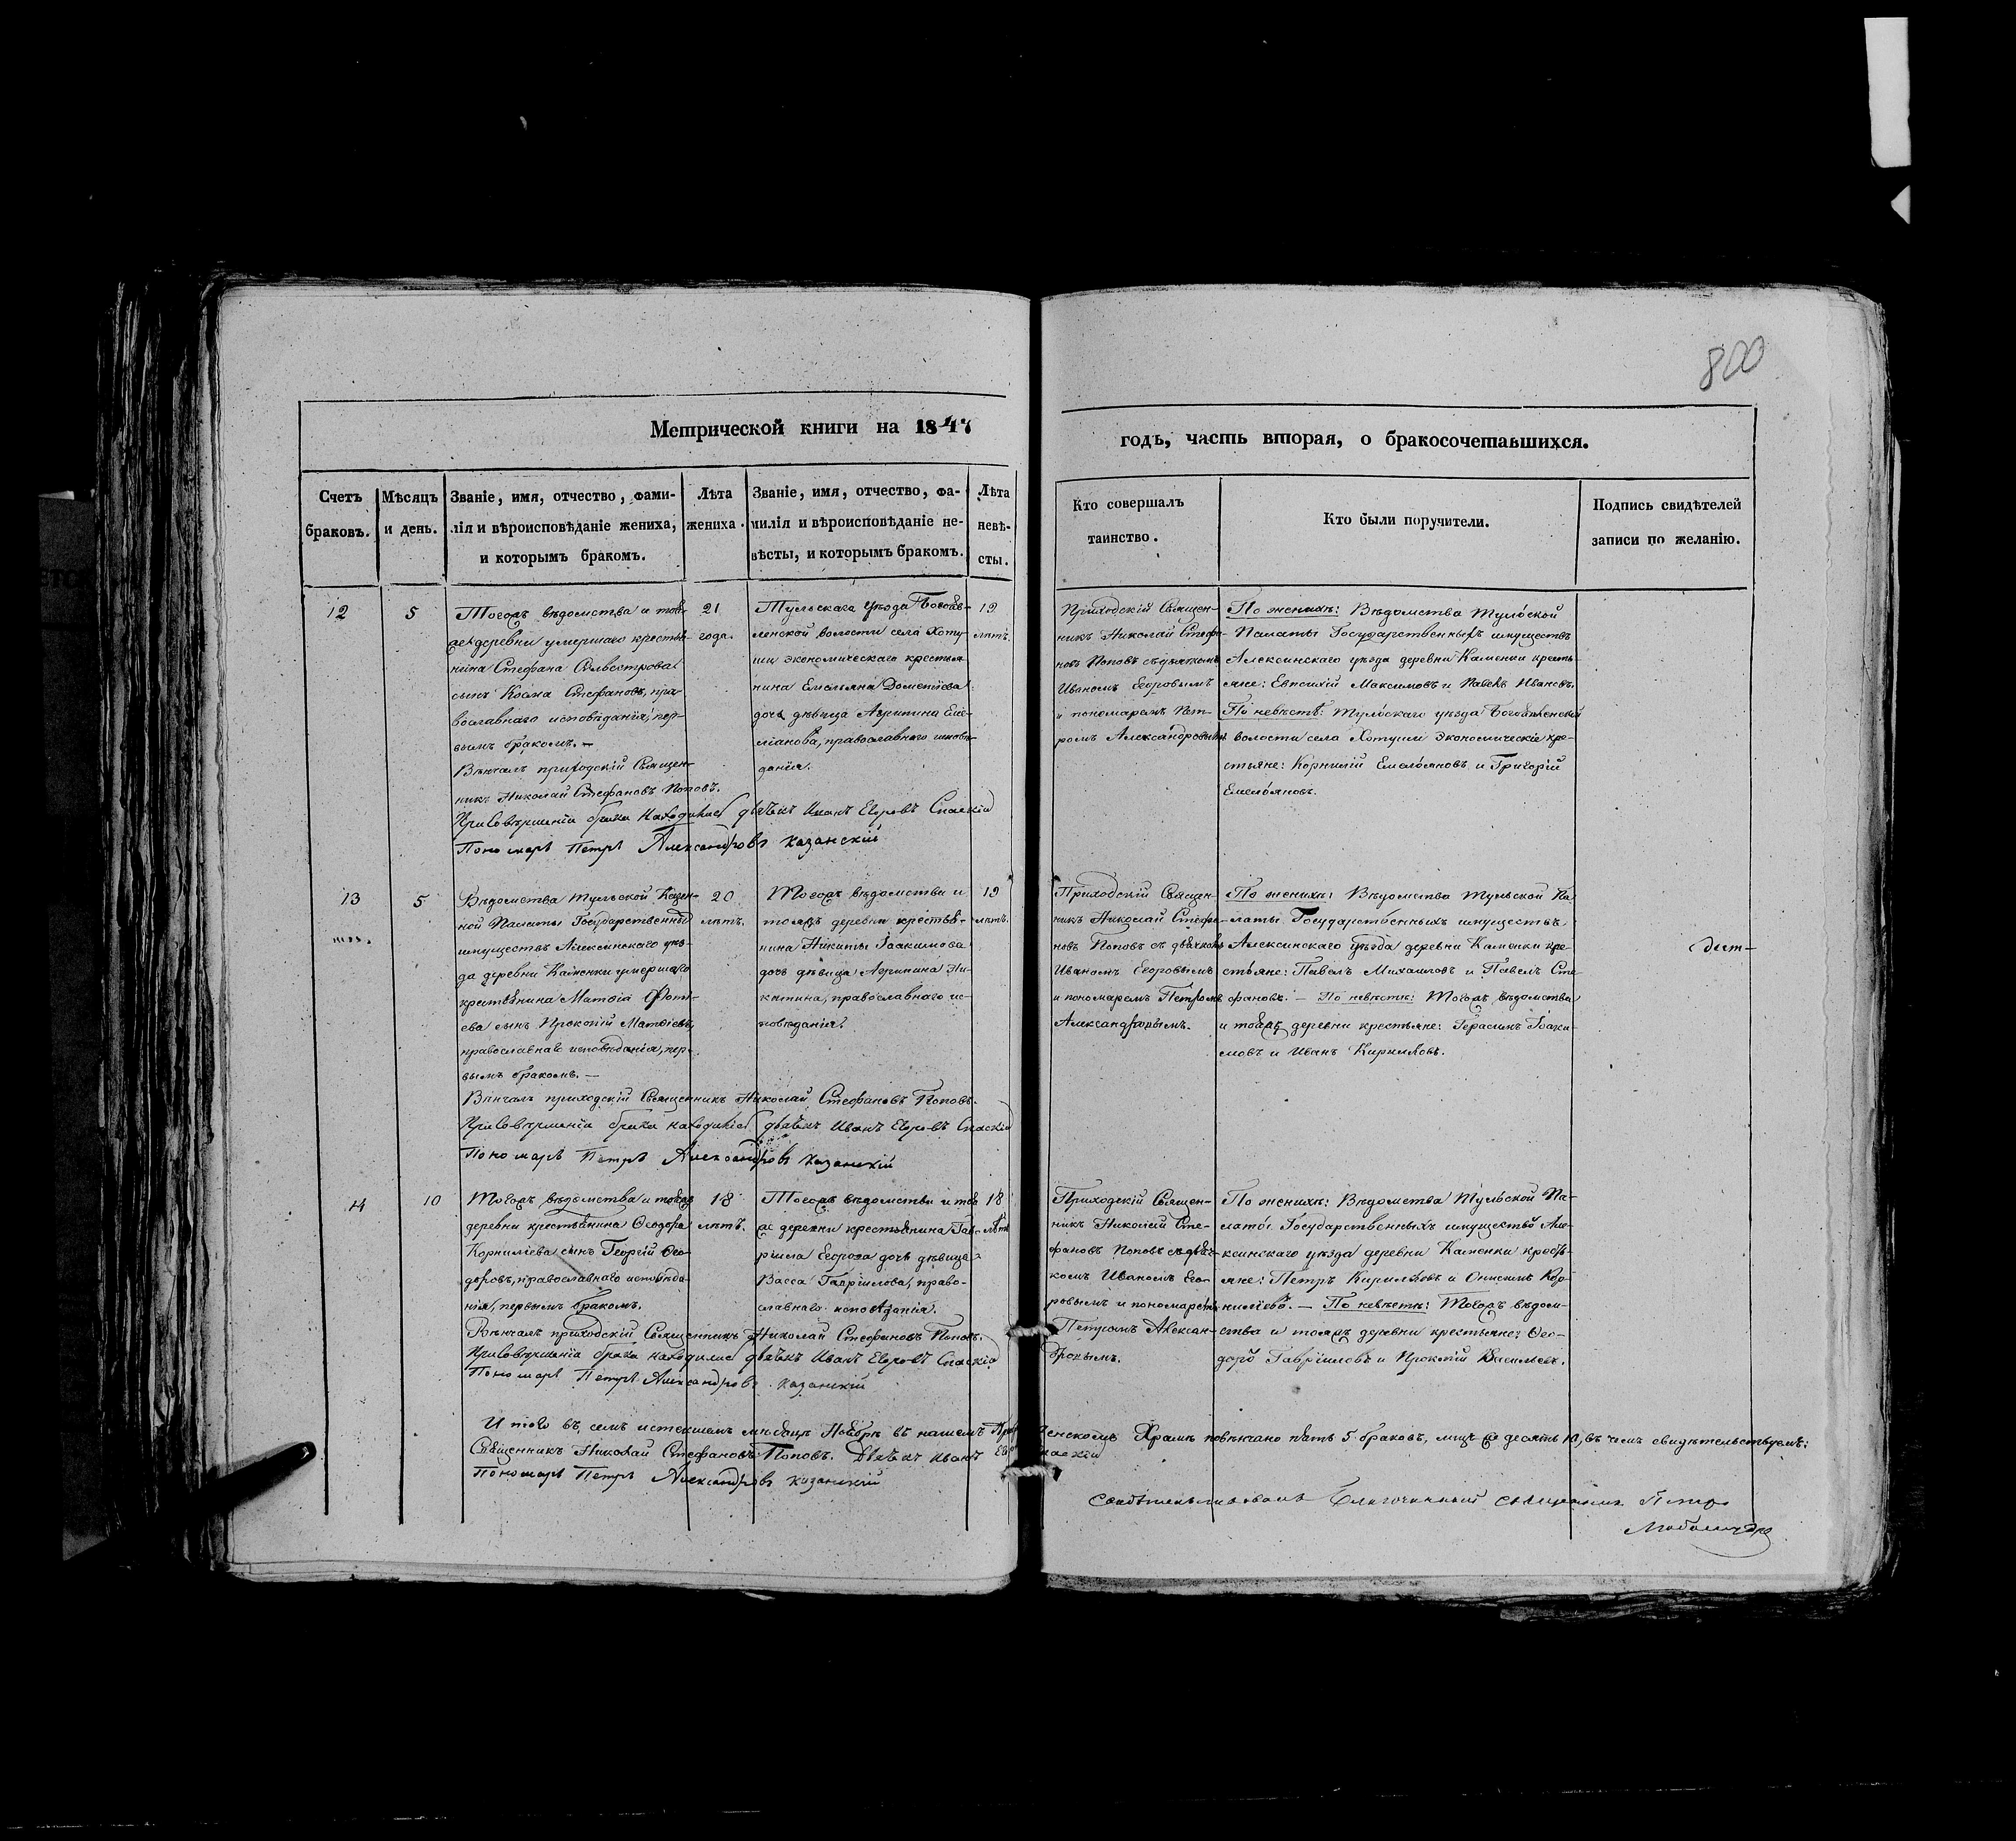 800
Метрической книги на 1847
годъ, часть вторая, о бракосочетавшихся.
Счетъ
браковъ.
Мѣсяцъ
и день.
Званіе, имя, отчество, фами-
лія и вѣроисповѣданіе жениха,
и которымъ бракомъ.
Лѣта
жениха.
Званіе, имя, отчество, фа-
милія и вѣроисповѣданіе не-
вѣсты, и которымъ бракомъ.
Лѣта
невѣ-
сты.
Кто совершалъ
таинство.
Кто были поручители.
Подпись свидѣтелей
записи по желанію.
12
5
Тогожъ вѣдомства и той-
жедеревни умершаго крестья-
нина Стефана Сильвестрова
сынъ Косма Стефановъ, пра-
вославнаго исповѣданія, пер-
вымъ бракомъ. —
Вѣнчалъ приходскій Священ-
никъ Николай Стефановъ Поповъ.
При Совѣршеніи брака находились дьячекъ Иванъ Егоровъ Спаскій
Пономарь Петръ Александровъ Казанскій
21
года.
Тульскаго уѣзда Богояв-
ленской волости села Хоту-
ши экономическаго крестья
нина Емельяна Дометіева
дочь дѣвица Агрипина Еме-
ліанова, православнаго исповѣ-
данія.
19
лѣтъ.
Приходскій Священ-
никъ Николай Стефа-
новъ Поповъ съ дьячкомъ
Иваномъ Егоровымъ
и пономаремъ Пет-
ромъ Александровымъ
По женихѣ: Вѣдомства Тульской
Палаты Государственныхъ имуществъ
Алексинскаго уѣзда деревни Каменки кресть-
яне: Евпсихій Максимовъ и Павелъ Ивановъ.
По невѣстѣ: Тульскаго уѣзда Богоявленской
волости села Хотуши экономическіе кре-
стьяне: Корнилій Емельяновъ и Григорій
Емельяновъ.
13
5
Вѣдомства Тульской Казен-
ной Палаты Государственных
имуществъ Алексинскаго уѣз-
да деревни Каменки умершаго
крестьянина Матѳія Фоті-
ева сынъ Прокопій Матѳіевъ,
православнаго исповѣданія, пер-
вымъ бракомъ. —
Вѣнчалъ приходскій Священникъ Николай Стефановъ Поповъ.
При Совѣршеніи брака находились дьячекъ Иванъ Егоровъ Спаскій
Пономарь Петръ Александровъ Казанскій
20
лѣтъ.
Тогожъ вѣдомства и
тойжъ деревни крестья-
нина Никиты Іоакимова
дочь дѣвица Агрипина Ни-
китина, православнаго ис-
повѣданія.
19
лѣтъ.
Приходскій Священ-
никъ Николай Стефа-
новъ Поповъ съ дьячкомъ
Иваномъ Егоровымъ
и пономаремъ Петромъ
Александровымъ.
По женихѣ: Вѣдомства Тульской Па-
латы Государственныхъ имуществъ
Алексинскаго уѣзда деревни Каменки кре-
стьяне: Павелъ Михаиловъ и Павелъ Сте-
фановъ. — По невѣстѣ: Тогожъ вѣдомства
и тойжъ деревни крестьяне: Герасимъ Іоаки-
мовъ и Иванъ Кириловъ.
14
10
Тогожъ вѣдомства и тойжъ
деревни крестьянина Ѳеодора
Корниліева сынъ Георгій Ѳео-
доровъ, православнаго исповѣда-
нія, первымъ бракомъ.
Вѣнчалъ приходскій Священникъ Николай Стефановъ Поповъ.
При Совѣршеніи брака находились дьячекъ Иванъ Егоровъ Спаскій
Пономарь Петръ Александровъ Казанскій
18
лѣтъ.
Тогожъ вѣдомства и той
же деревни крестьянина Гав-
ріила Егорова дочь дѣвица
Васса Гавріилова, право-
славнаго исповѣданія.
18
лѣтъ
Приходскій Священ-
никъ Николай Сте-
фановъ Поповъ съ дьяч-
комъ Иваномъ Его-
ровымъ и пономаремъ
Петромъ Алексан-
дровымъ.
По женихѣ: Вѣдомства Тульской Па-
латы Государственныхъ имуществъ Але-
ксинскаго уѣзда деревни Каменки кресть-
яне: Петръ Кириловъ и Онисимъ Кор-
ниліевъ. — По невѣстѣ: Тогожъ вѣдом-
ства и тойжъ деревни крестьяне: Ѳео-
доръ Гавріиловъ и Прокопій Васильевъ.
Итого въ семъ истекшемъ мѣсяцѣ Ноябрѣ въ нашемъ храмѣ повѣнчано пять 5 браковъ, лицъ десять 10, въ чемъ свидѣтельствуемъ:
Священникъ Николай Стефановъ Поповъ. Дьячекъ Иванъ Спаскій
Пономарь Петръ Александровъ Казанскій
Свидѣтельствовалъ Благочинный Священникъ Петръ